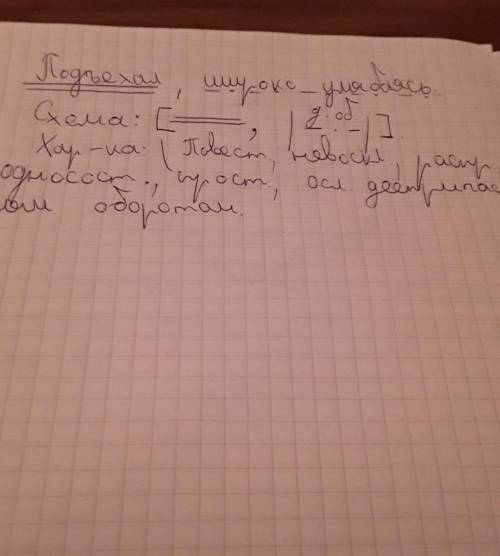 Подъехал, широко улыбаясь.
Схема: [══, |д.об.|].
Хар-ка: (Повест., невоскл., распр.
односост., прост., осл. деепричас
ным оборотом.